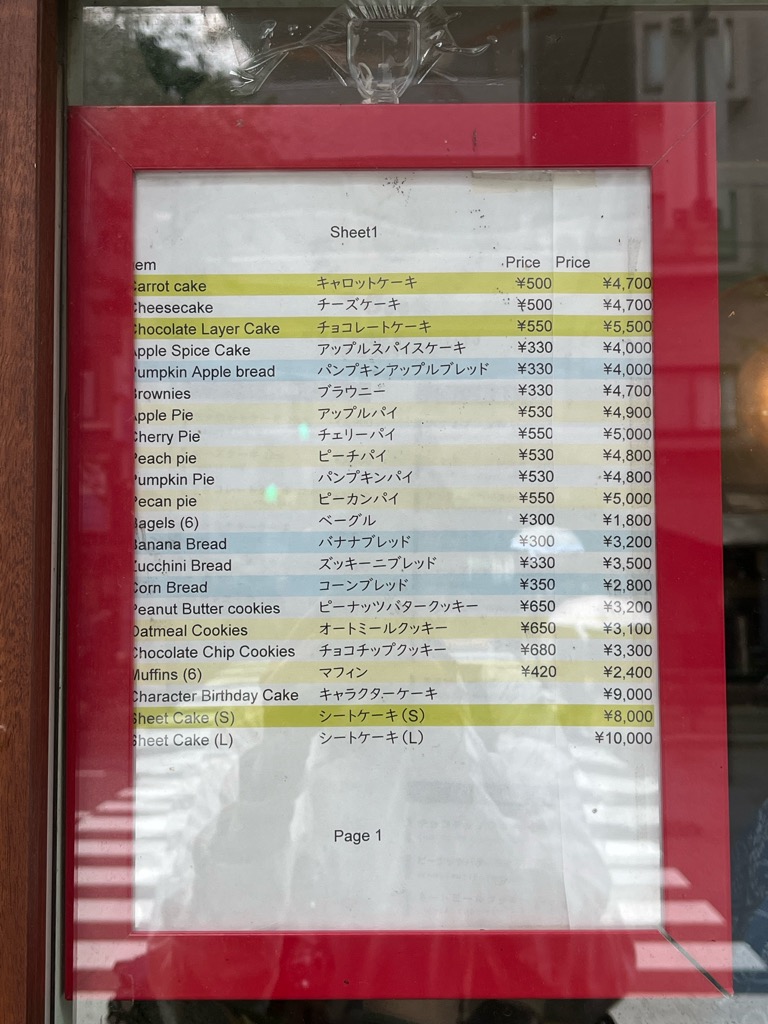 Sheet1
em Price Price
arrot cake キャロットケーキ ¥500 ¥4,700
heesecake チーズケーキ ¥500 ¥4,700
hocolate Layer Cake チョコレートケーキ ¥550 ¥5,500
pple Spice Cake アップルスパイスケーキ ¥330 ¥4,000
umpkin Apple bread パンプキンアップルブレッド ¥330 ¥4,000
rownies ブラウニー ¥330 ¥4,700
pple Pie アップルパイ ¥530 ¥4,900
herry Pie チェリーパイ ¥550 ¥5,000
each pie ピーチパイ ¥530 ¥4,800
umpkin Pie パンプキンパイ ¥530 ¥4,800
ecan pie ピーカンパイ ¥550 ¥5,000
agels (6) ベーグル ¥300 ¥1,800
anana Bread バナナブレッド ¥300 ¥3,200
ucchini Bread ズッキーニブレッド ¥330 ¥3,500
orn Bread コーンブレッド ¥350 ¥2,800
eanut Butter cookies ピーナッツバタークッキー ¥650 ¥3,200
Oatmeal Cookies オートミールクッキー ¥650 ¥3,100
Chocolate Chip Cookies チョコチップクッキー ¥680 ¥3,300
Muffins (6) マフィン ¥420 ¥2,400
Character Birthday Cake キャラクターケーキ ¥9,000
Sheet Cake (S) シートケーキ(S) ¥8,000
Sheet Cake (L) シートケーキ(L) ¥10,000
Page 1